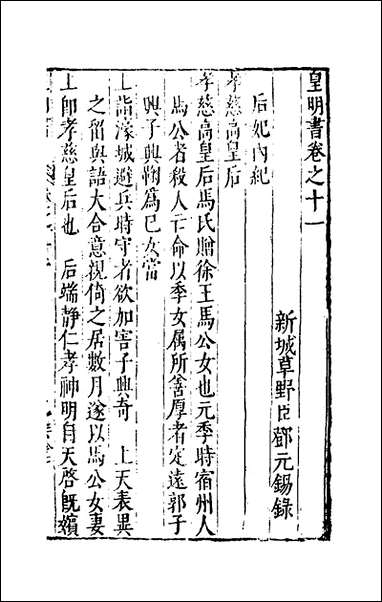 皇明書卷之十一
新城草野臣鄧元錫錄
后妃內紀
孝慈高皇后
孝慈高皇后馬氏贈徐王馬公女也元季時宿州人
馬公者殺人亡命以季女属所善厚者定遠郭子
興子興鞠為已女當
上詣濠城避兵時守者欲加害子興奇 上天表異
之留與語大合意視倚之居數月遂以馬公女妻
上卽孝慈皇后也 后端静仁孝神明自天啓旣嬪